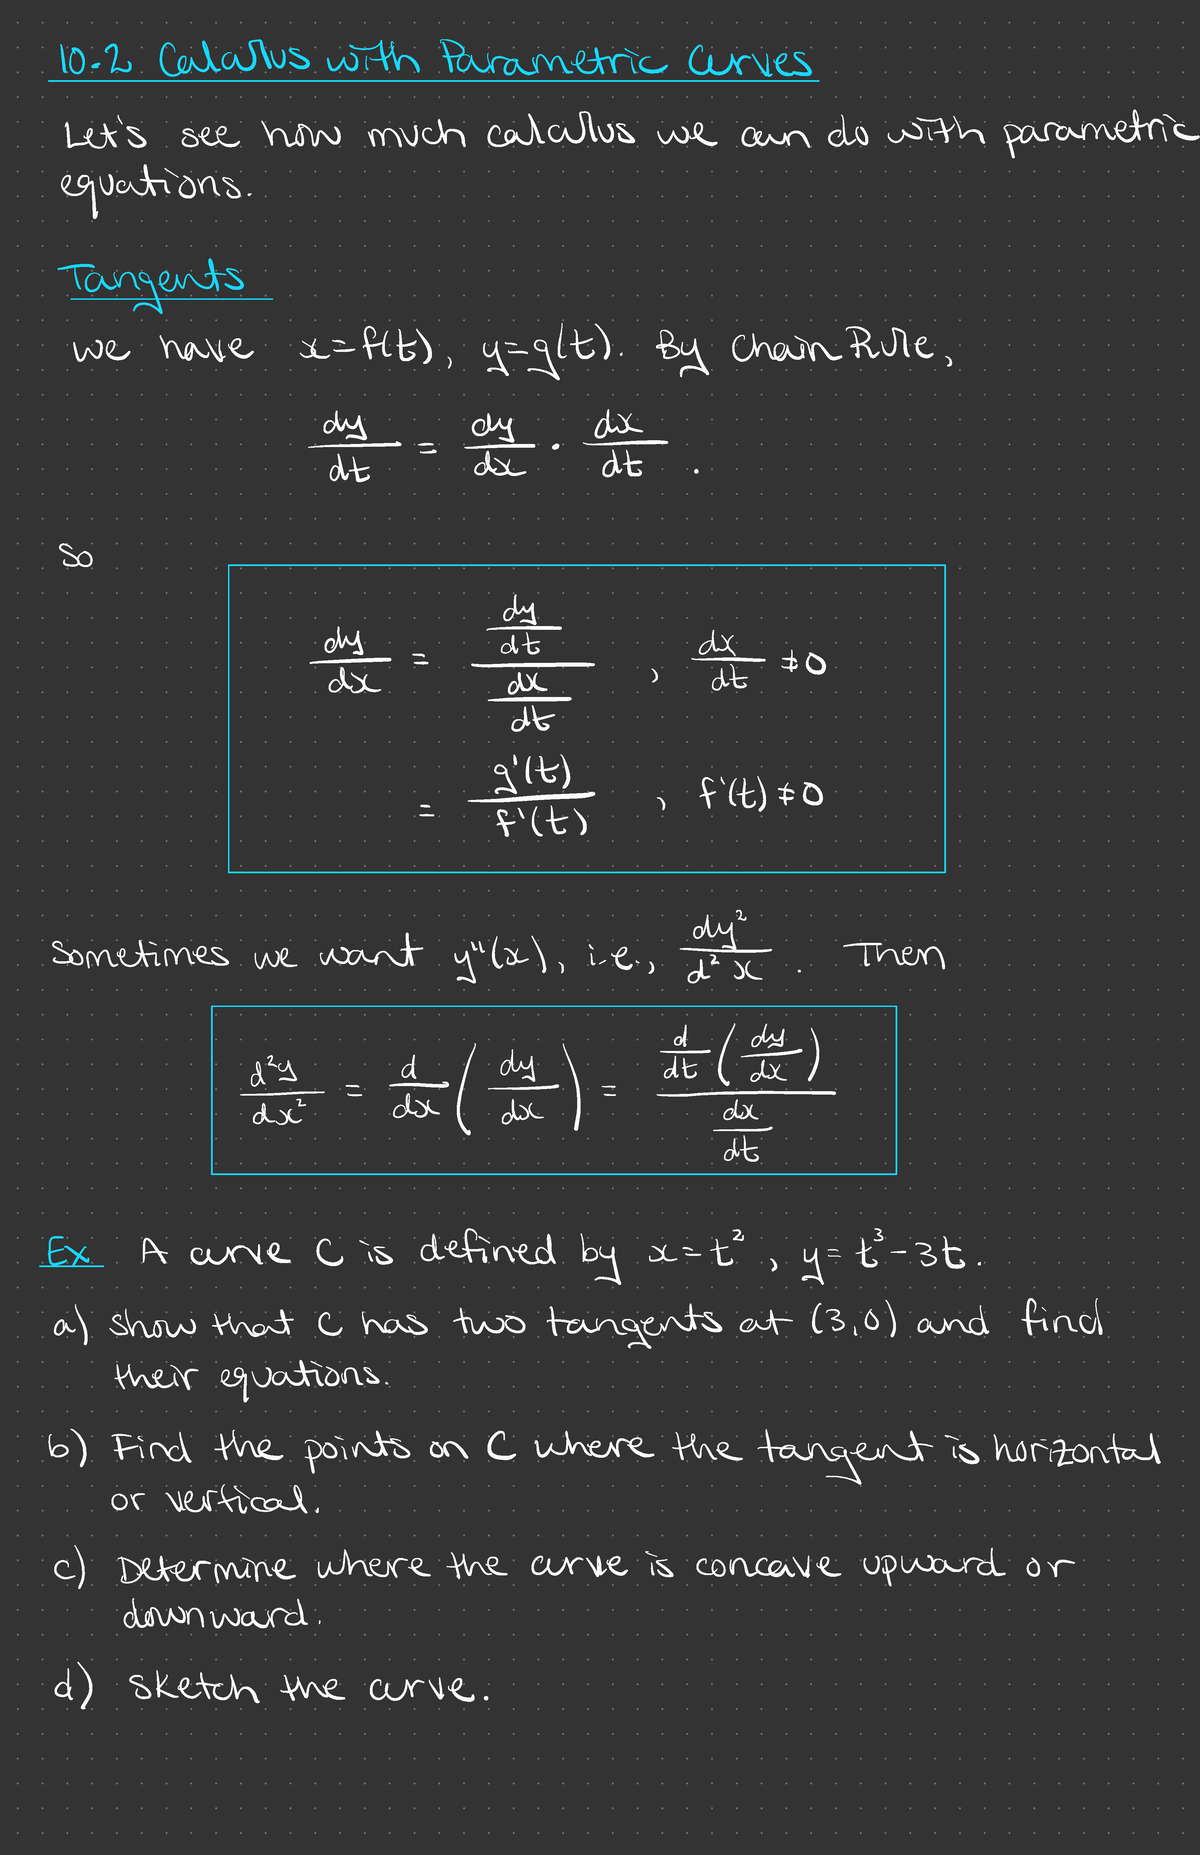 10.2 Calculus with Parametric Curves
Let's see how much calculus we can do with parametric
equations.
Tangents
we have x=f(t), y=g(t). By Chain Rule,
dy/dt = dy/dx · dx/dt .
So
dy/dx = (dy/dt)/(dx/dt) , dx/dt ≠ 0
= g'(t)/f'(t) , f'(t) ≠ 0
Sometimes we want y"(x), i.e., dy²/d²x . Then
d²y/dx² = d/dx (dy/dx) = (d/dt (dy/dx))/(dx/dt)
Ex A curve C is defined by x=t², y=t³-3t.
a) Show that C has two tangents at (3,0) and find
their equations.
b) Find the points on C where the tangent is horizontal
or vertical.
c) Determine where the curve is concave upward or
downward.
d) Sketch the curve.